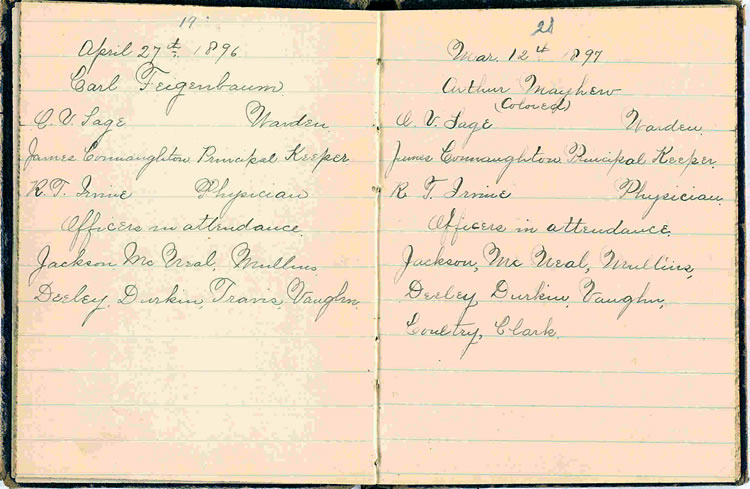 19
April 27th 1896
Carl Feigenbaum
O. V. Sage Warden
James Connaughton Principal Keeper
R. T. Irvine Physician
Officers in attendance
Jackson Mc Neal, Mullins
Deeley, Durkin, Travis, Vaughn.
21
Mar. 12th 1897
Arthur Mayhew
(Colored)
O. V. Sage Warden.
James Connaughton Principal Keeper.
R. T. Irvine Physician.
Officers in attendance.
Jackson, Mc Neal, Mullins,
Deeley, Durkin, Vaughn,
Coultry, Clark